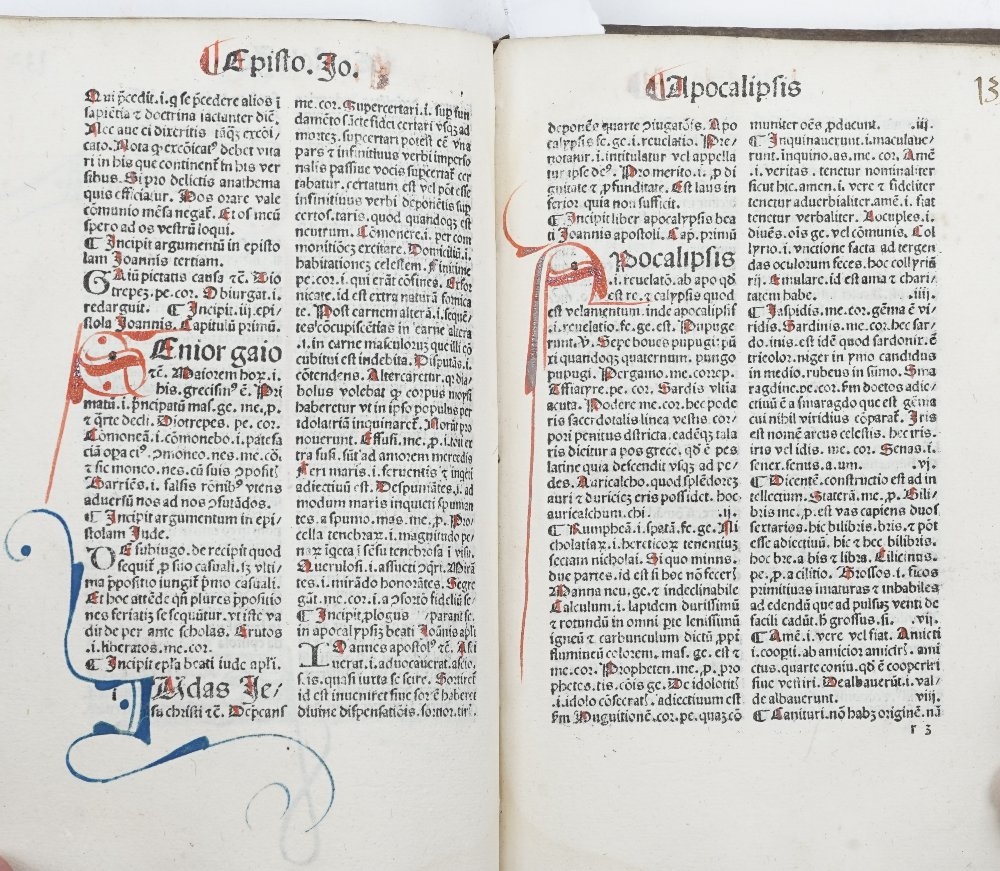 Episto. Jo.
Qui p̃cedit .i. q̃ se p̃cedere alios ĩ
sapiẽtia et doctrina iactanter dicẽ.
Nec aue ei dixeritis tãq̃ȝ excõi/
cato. Nota q̃ excõicat⁹ debet vita
ri in his que continent̃ in his ver
sibus. Si pro delictis anathema
quis efficiatur. Nos orare vale
cõmunio mẽsa negat̃. Et os meũ
spero ad os vestrũ loqui.
¶ Incipit argumentũ in episto
lam Joannis tertiam.
GAiũ pietatis causa ⁊c̃. Dio
trepeȝ.pe.cor. Obiurgat.i.
redarguit. ¶ Incipit.iij.epi/
stola Joannis. Capitulũ primũ.
SEnior gaio
⁊c̃. Maiorem hoꝝ.i.
his.grecismꝰ ẽ. Pri
matũ.i.p̃ncipatũ mas.ge.me.p.
⁊ q̃rte decli. Diotrepes. pe. cor.
Cõmoneã.i.cõmonebo.i.patefa
ciã opa eiꝰ. ꝯmoneo.nes.me.cõ.
⁊ sic moneo.nes cũ suis ꝯposit̃
Garriẽs.i. falsis rõnib⁹ vtens
aduersũ nos ad nos ꝯfutãdos.
¶ Incipit argumentum in epi/
stolam Jude.
DE subiugo.de recipit quod
sequit̃.p suo casuali.sȝ vlti/
ma p̃positio iungit̃ p̃mo casuali.
Et hoc attẽde qñ plures p̃positio
nes seriatiȝ se sequũtur.vt iste va
dit de per ante scholas. Erutos
.i.liberatos.me.cor.
¶ Incipit ep̃la beati iude ap̃li.
IUdas Je/
su christi ⁊c̃. Depcans
me.cor.i. Supercertari.i. sup fun
damẽto sãcte fidei certari vsq̃ȝ ad
morteȝ. supcertari potest eẽ vna
pars ⁊ infinitiuus verbi imperso
nalis passiue vocis supcertat̃ cer
tabatur. certatum est vel põt esse
infinitiuus verbi deponẽtis sup
certor.taris.quod quandoq̃ȝ est
neutrum. Cõmonere.i. per com
monitiõeȝ excitare. Domiciliũ.i.
habitationeȝ celestem. Finitime
pe.cor.i. qui erãt cõfines. Exfor
nicate.id est extra naturã fornica
te. Post carnem alterã.i.sequẽ/
tes cõcupiscẽtias in carne altera
.i. in carne masculoruȝ que illi cõ
cubitui est indebita. Disputãs.i.
cõtendens. Altercaretur.q̃ dia/
bolus volebat q̃ corpus moysi
haberetur vt in ipso populus per
idolatriã inquinaret̃. Norũt p̃ro
nouerunt. Effusi.me.p.i.toti ex
tra fusi. sũt ad amorem mercedis
Feri maris.i.feruentis ⁊ inq̃eti
adiectiuũ est. Despumãtes.i. ad
modum maris inquieti spuman
tes.a spumo.mas.me.p. Pro/
cella tenebraꝝ.i.magnitudo pe/
naꝝ iq̃cta ĩ sẽsu tenebrosa ĩ visu.
Querulosi.i.assueti ꝯq̃ri. Mirã
tes.i.mirãdo honorãtes. Segre
gãt.me.cor.i.a ꝯsortio fideliũ se/
¶ Incipit p̃logus /parant se.
in apocalypsiȝ beati Joãnis ap̃li
IOannes apostol⁹ ⁊c̃. Asi
uerat.i aduocauerat.ascio.
s.is.quasi iuxta se scire. Sortiret̃
id est inueniret siue sorẽ haberet
diuine dispensatiõis.sortior.tir̃.
Apocalipsis
13
deponẽs quarte ꝯiugatiõis. Apo
calypsis fe.ge.i.reuelatio. Pre/
notatur.i.intitulatur vel appella
tur ipse de⁹. Pro merito.i.p di
gnitate ⁊ p̃funditate. Est laus in
ferior quia non sufficit.
¶ Incipit liber apocalypsis bea
ti Joannis apostoli. Cap.primũ
APocalipsis
.i.reuelatõ.ab apo qd̃
est re.⁊ calypsis quod
est velamentum. inde apocalipsis
.i.reuelatio.fe.ge.est. Pupuge
runt.℣. Sepe boues pupugi: pũ
xi quandoqȝ quaternum. pungo
pupugi. Pergamo.me.correp.
Thiatyre.pe.cor. Sardis vltia
acuta. Podere me.cor.hec pode
ris sacerdotalis linea vestis cor/
pori penitus districta.eadẽq̃ȝ tala
ris dicitur a pos grece. qd̃ ẽ pes
latine quia descendit vsq̃ȝ ad pe/
des. Auricalcho.quod splẽdoreȝ
auri ⁊ duricieȝ eris possidet. hoc
auricalchum.chi. .ij.
¶ Rumpheã.i.spatã.fe.ge. Ni
cholaitaꝝ.i.hereticoꝝ tenentiuȝ
sectam nicholai. Si quo minns.
due partes.id est si hoc nõ feceris
Manna neu.ge.⁊ indeclinabile
Calculum.i.lapidem durissimũ
⁊ rotundũ in omni p̃te lenissimũ
igneũ ⁊ carbunculum dictũ p̃pt̃
flammeũ colorem. mas.ge.est ⁊
me.cor. Propheten.me.p̃.pro
phetes.tis.cõis ge. De idolotiti
.i.idolo cõsecrat̃.adiectiuum est
fm̃ Huguitionẽ.cor.pe.quaȝ cõ
muniter oẽs p̃ducunt. .iij.
¶ Inquinauerunt.i.maculaue/
runt.inquino.as.me.cor. Amẽ
.i.veritas.tenetur nominaliter
sicut hic.amen.i. vere ⁊ fideliter
tenetur aduerbialiter.amẽ.i. fiat
tenetur verbaliter. Locuples.i.
diues.ois ge.vel cõmunis. Col
lyrio.i.vnctione facta ad tergen
das oculorum feces.hoc collyriũ
rij. Emulare.id est ama ⁊ chari/
tatem habe. .iiij.
¶ Jaspidis.me.cor.gẽma ẽ vi/
ridis. Sardinis.me.cor.hec sar/
do.inis.est idẽ quod sardonix.ẽ
tricolor.niger in p̃mo candidus
in medio.rubeus in sũmo. Sma
ragdine.pe.cor. fm̃ doctos adie/
ctiuũ ẽ a smaragdo que est gẽma
cui nihil viridius cõparat̃. Jris
est nomẽ arcus celestis. hec iris.
iris vel idis.me.cor. Senas.i.
senex.senus.a.um. .vj.
¶ Dicentẽ.constructio est ad in
tellectum. Staterã.me.p. Bili/
bris me.p.est vas capiens duos
sextarios.hic bilibris.bris.⁊ põt
esse adiectiuũ.hic ⁊ hec bilibris.
hoc bre.a bis ⁊ libra. Cilicinus.
pe.p.a cilitio. Grossos.i.ficos
primitiuas imaturas ⁊ inhabiles
ad edendũ que ad pulsuȝ venti de
facili cadũt.h̃ grossus.si. .vij.
¶ Amẽ.i.vere vel fiat. Amicti
.i.coopti.ab amicior amiciris.ami
ctus.quarte coniu.qd̃ ẽ cooperiri
siue vestiri. Dealbauerũt.i.val/
de albauerunt. .viij.
¶ Canituri.nõ habȝ originẽ.nã
r 3